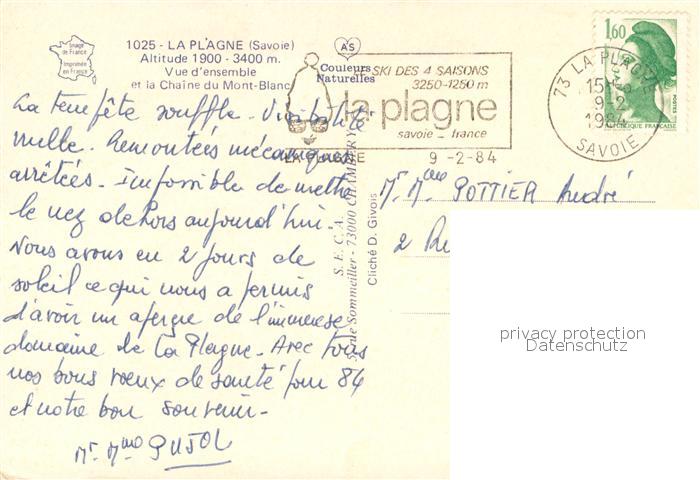 Image
de France
Imprimée
en France
1025 - LA PLAGNE (Savoie)
Altitude 1900 - 3400 m.
Vue d'ensemble
et la Chaîne du Mont-Blanc
AS
Couleurs
Naturelles
LE SKI DES 4 SAISONS
3250-1250 m
la plagne
savoie - france
LA PLAGNE
9 -2-84
73 LA PLAGNE
15H
9-2
1984
SAVOIE
1,60
RÉPUBLIQUE FRANÇAISE
POSTES
La tempête souffle. Visibilité
nulle. Remontées mécaniques
arrêtées. Impossible de mettre
le nez dehors aujourd'hui.
Nous avons eu 2 jours de
soleil ce qui nous a permis
d'avoir un aperçu de l'immense
domaine de la Plagne. Avec tous
nos bons vœux de santé pour 84
et notre bon souvenir.
Mr Mme PUJOL
S.E.C.A.
Sommeiller - 73000 CHAMBERY
Cliché D. Givois
Mr Mme POTTIER André
2 Ru
privacy protection
Datenschutz